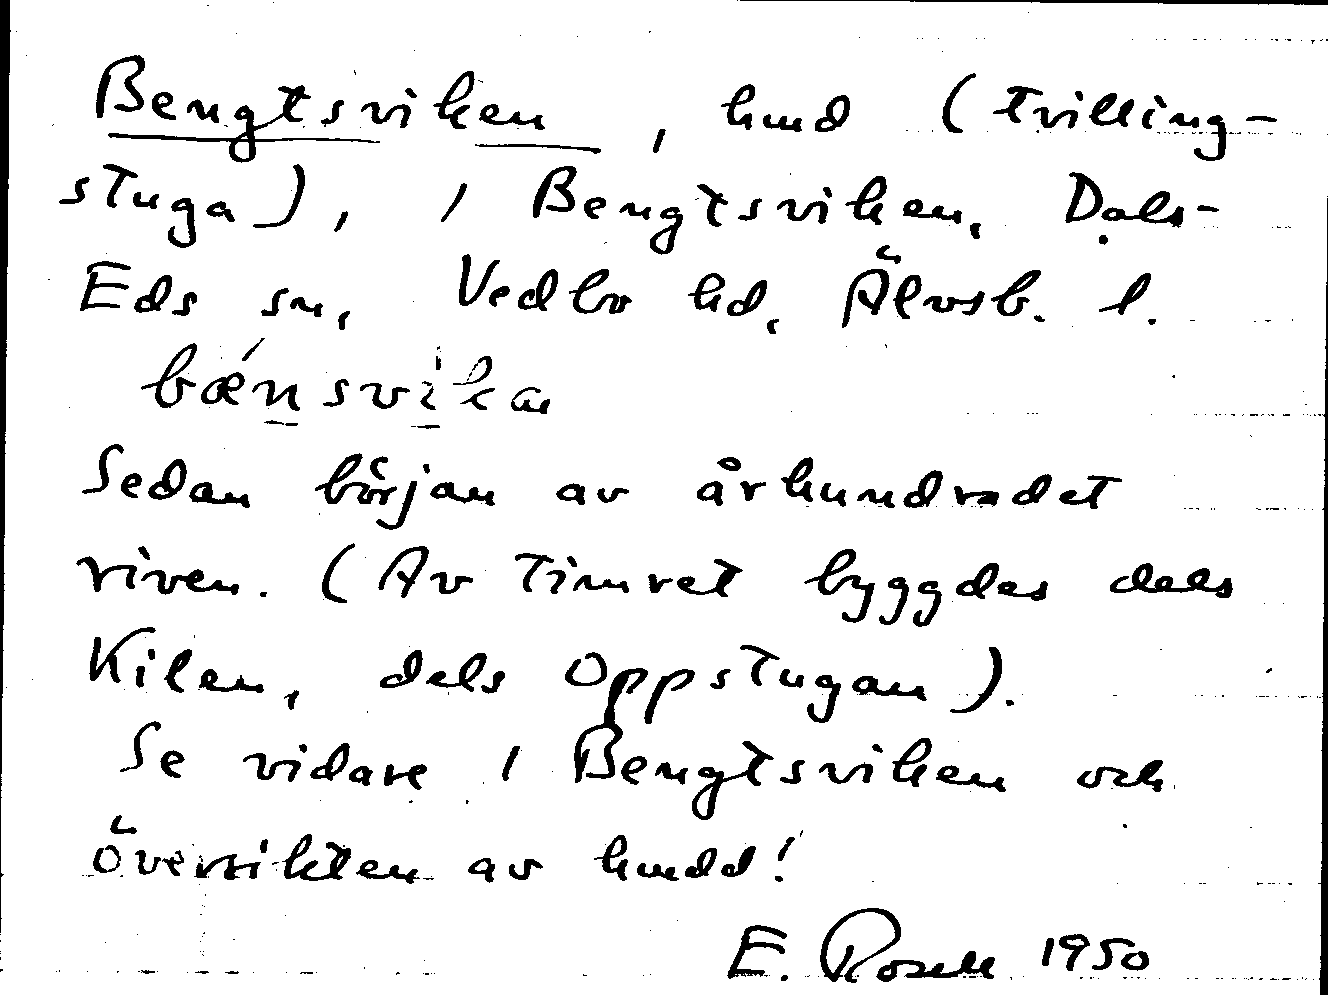 Bengtsviken, hmd (tvilling-
stuga), / Bengtsviken, Dals-
Eds sn, Vedbo hd, Älvsb. l.
bænsvikan
Sedan början av århundradet
riven. (Av timret byggdes dels
Kilen, dels Oppstugan).
Se vidare / Bengtsviken och
översikten av hmdd!
E. Rosell 1950